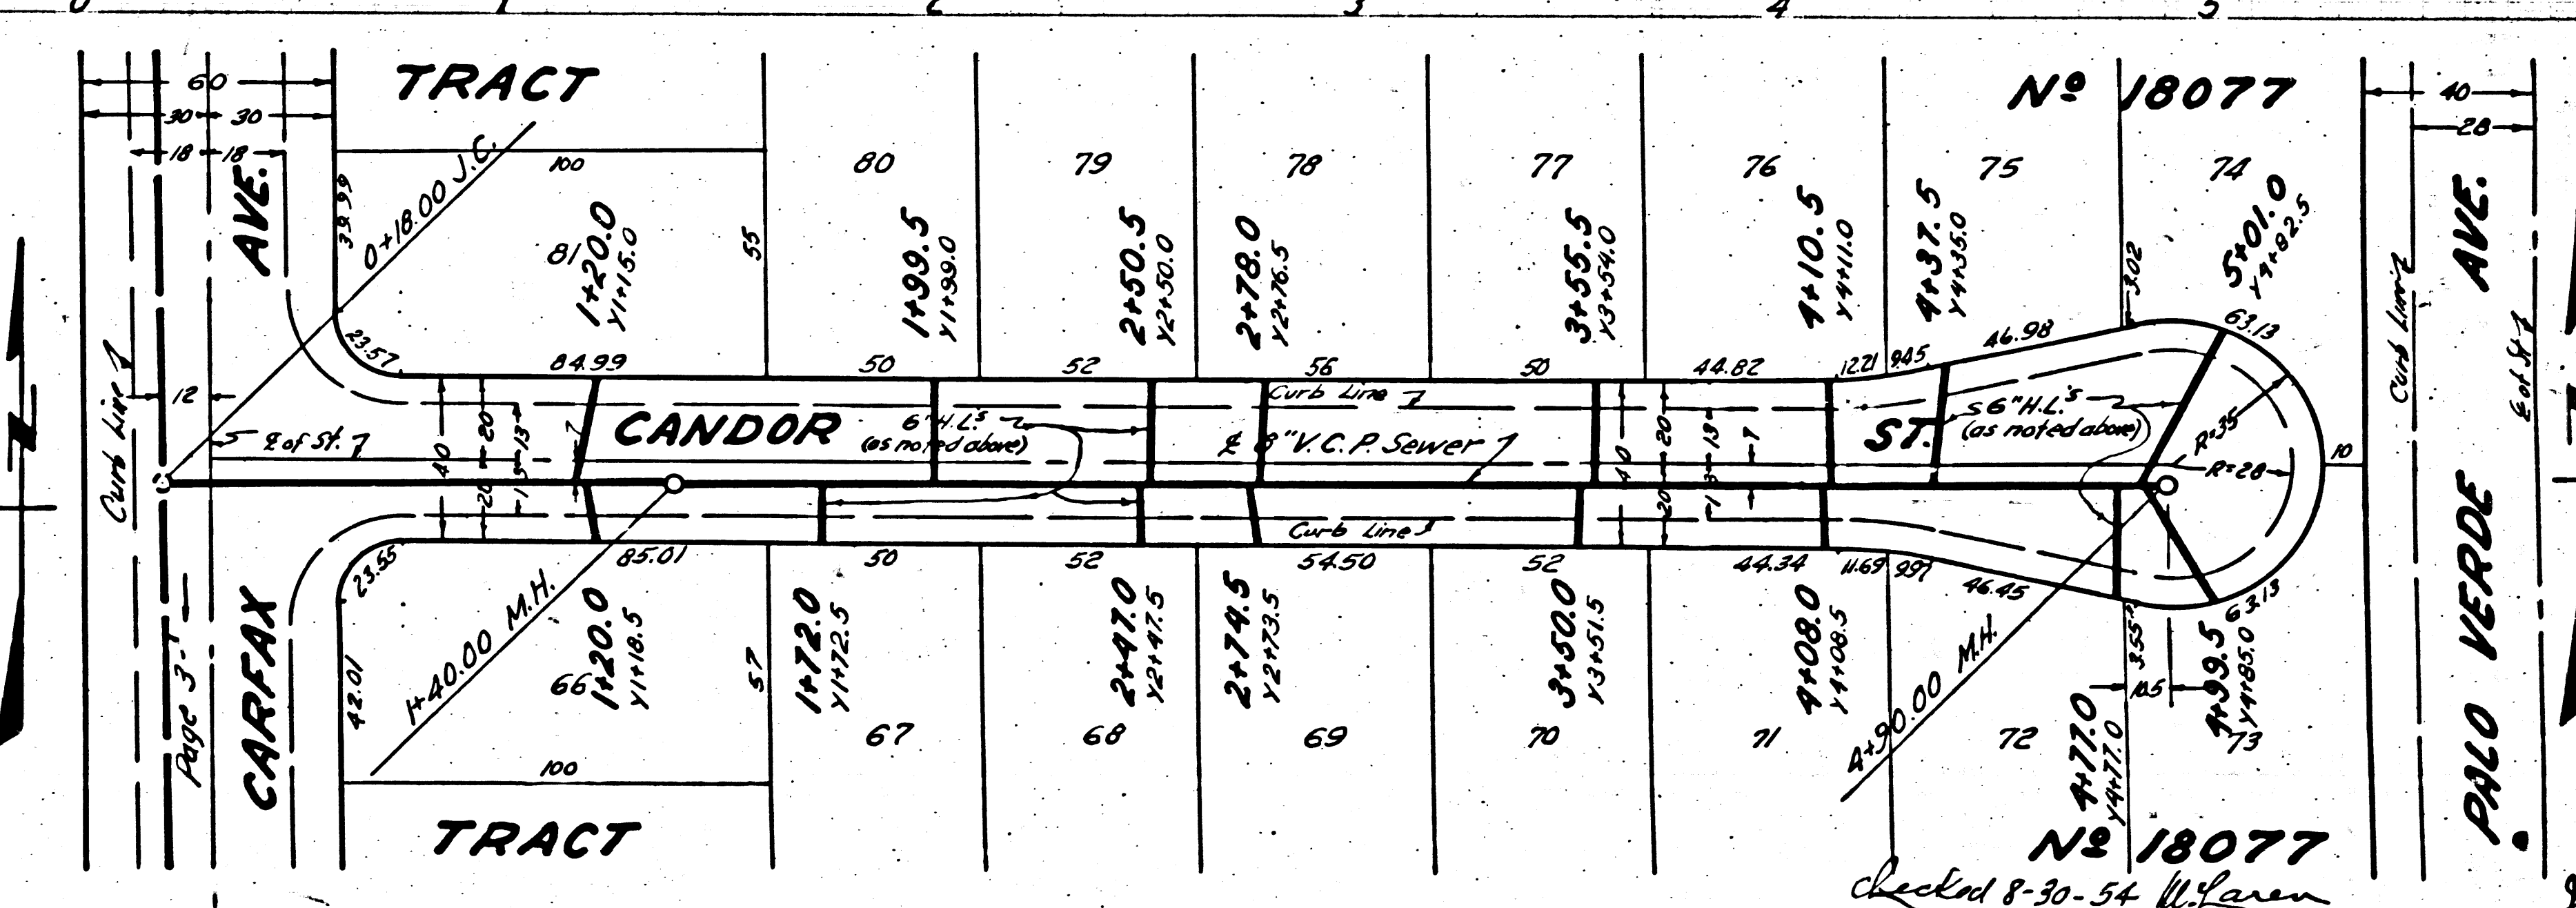 0 1 2 3 4 5
TRACT
Nº 18077
60
30 30
18 18
40
28
AVE.
39.99
0+18.00 J.C.
100
81
1+20.0
Y1+15.0
55
80
1+99.5
Y1+99.0
79
2+50.5
Y2+50.0
78
2+78.0
Y2+76.5
77
3+55.5
Y3+54.0
76
4+10.5
Y4+11.0
75
4+37.5
Y4+35.0
74
5+01.0
Y4+82.5
3.02
AVE.
Curb Line
¢ of St.
23.57
84.99
50
52
56
50
44.82
12.21
9.45
46.98
63.13
Curb Line
12
5
¢ of St.
40
20 20
13
CANDOR
6" H.L.'s
(as noted above)
Curb Line
¢ 8" V.C.P. Sewer
40
20 20
13 13
7
ST.
6" H.L.'s
(as noted above)
R=35
R=28
10
Curb Line
23.55
85.01
50
52
54.50
52
44.34
11.69
9.97
46.45
63.13
Curb Line
Page 3
CARFAX
42.01
1+40.00 M.H.
66
1+20.0
Y1+18.5
57
100
1+72.0
Y1+72.5
67
2+47.0
Y2+47.5
68
2+74.5
Y2+73.5
69
3+50.0
Y3+51.5
70
4+08.0
Y4+08.5
71
4+90.00 M.H.
72
4+77.0
Y4+77.0
3.55
10.5
4+99.5
Y4+85.0
73
PALO VERDE
TRACT
Nº 18077
Checked 8-30-54 McLaren